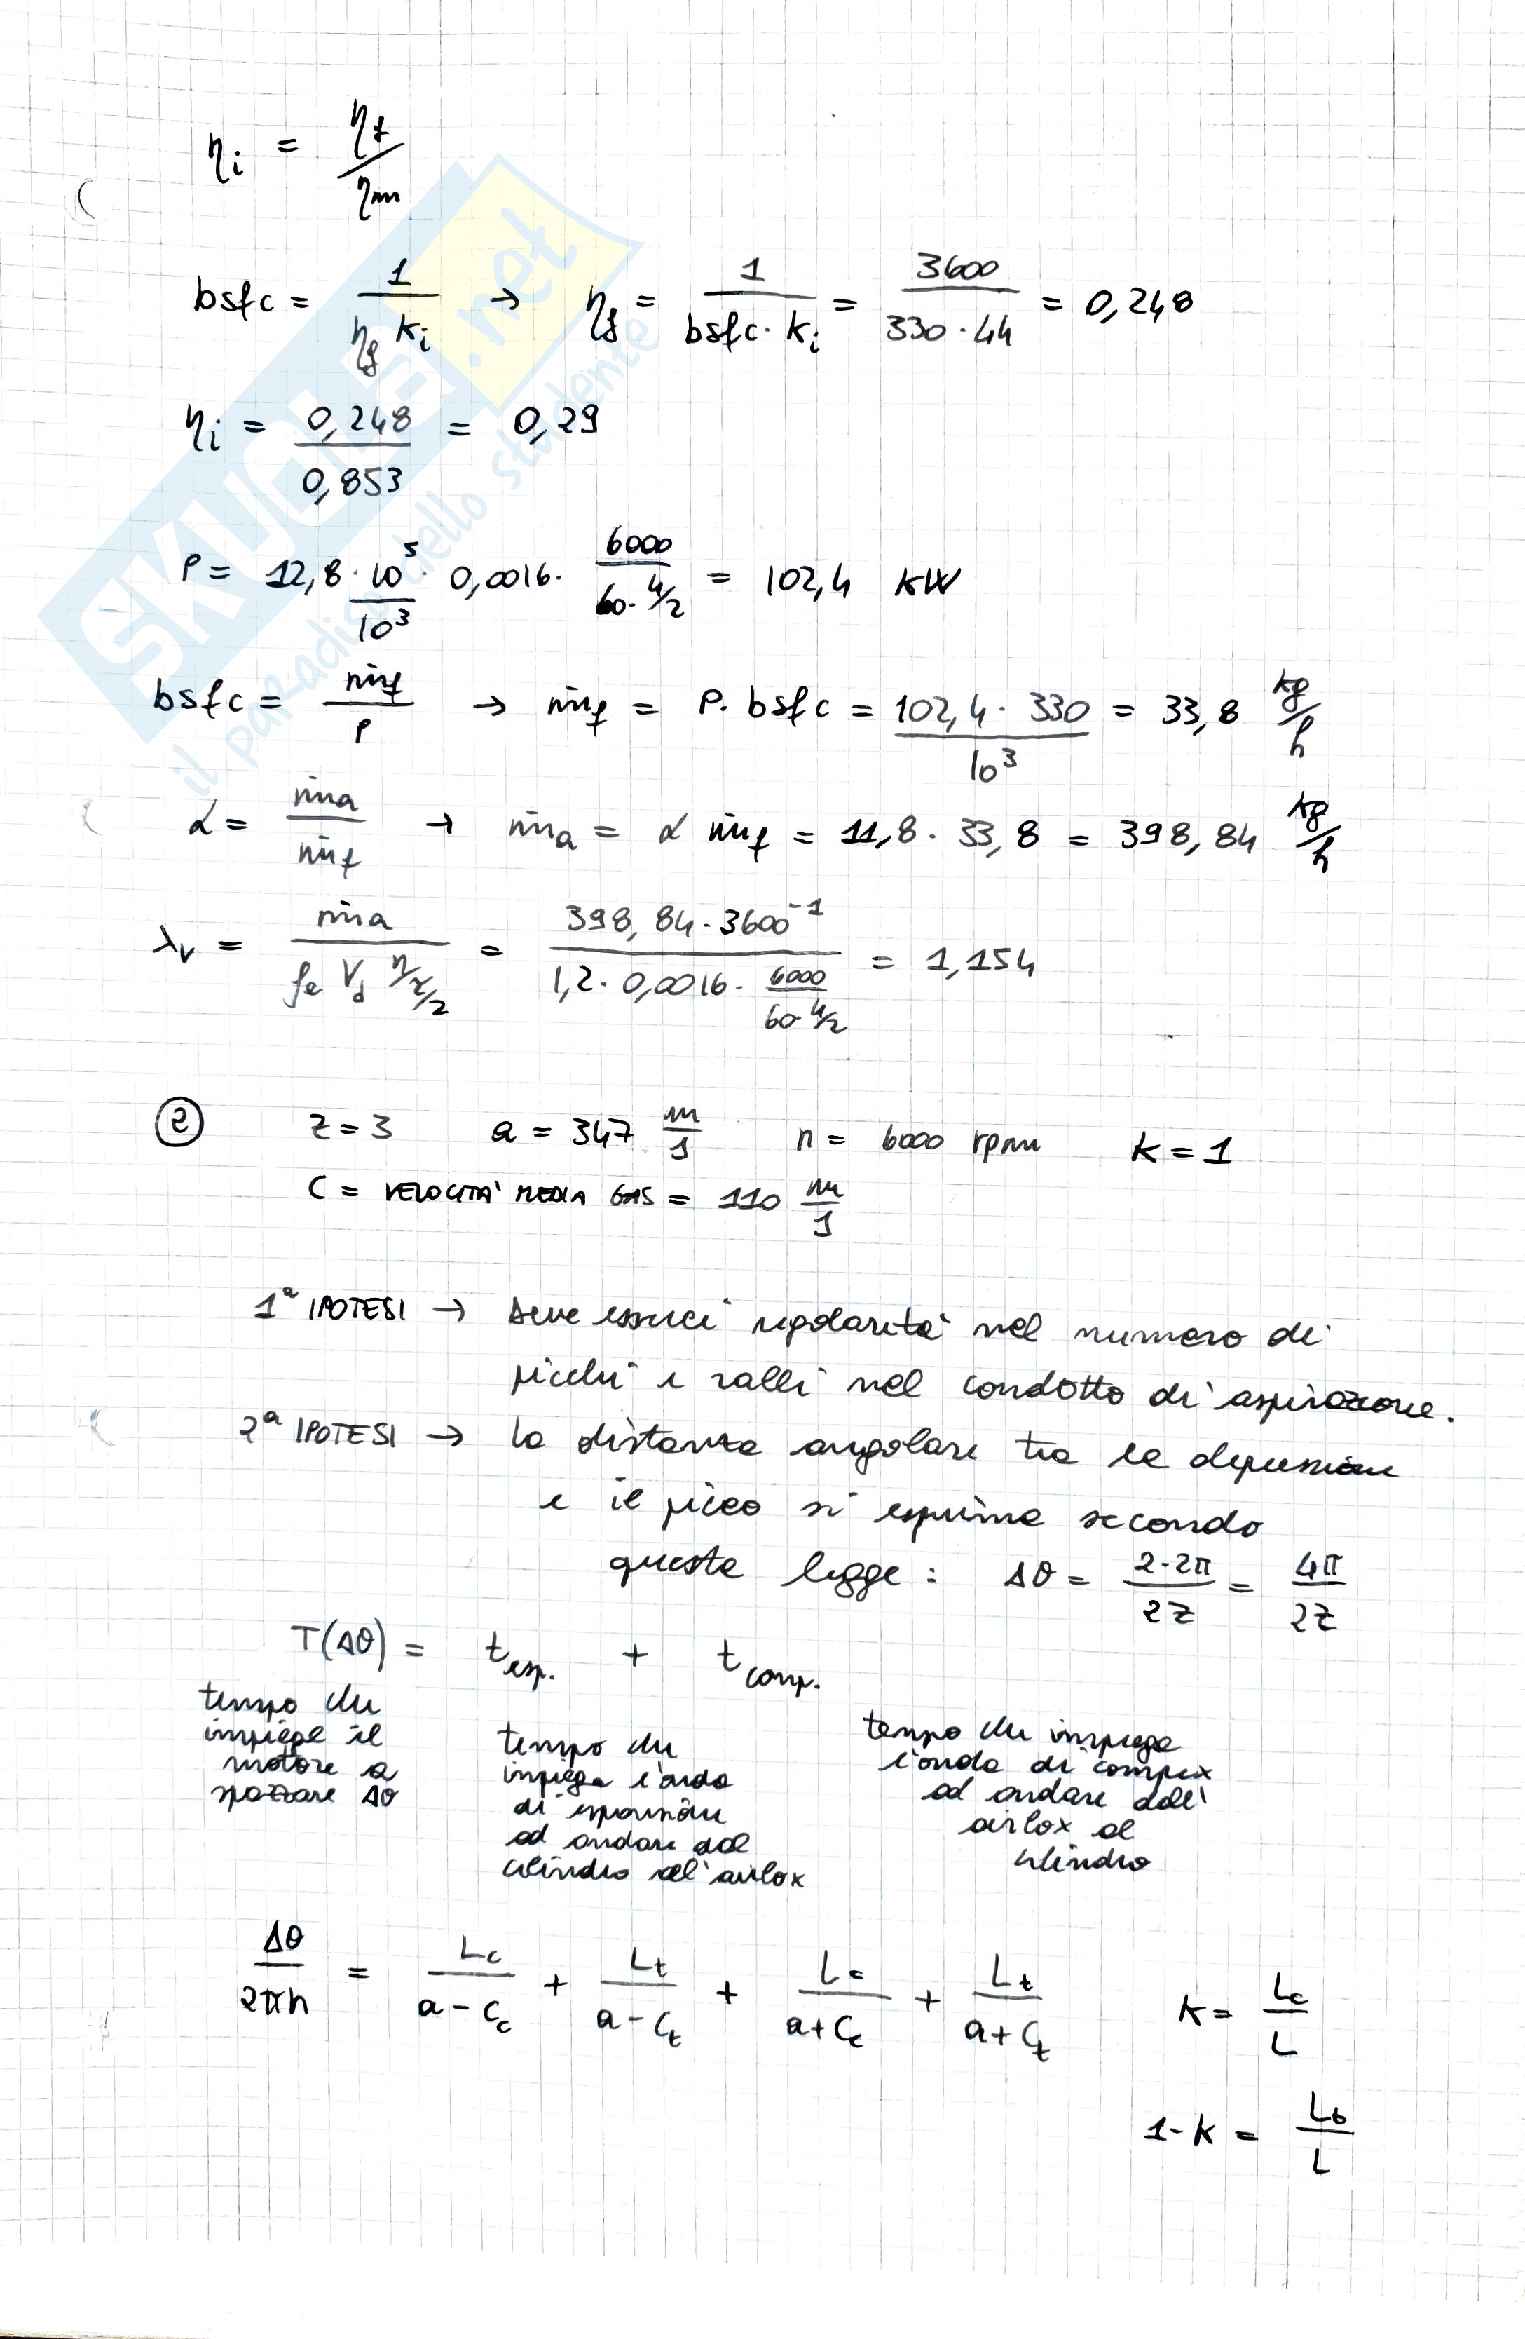 ηi = ηf/ηm
bsfc = 1/(ηg ki) → ηg = 1/(bsfc · ki) = 3600/(330 · 44) = 0,248
ηi = 0,248/0,853 = 0,29
P = 12,8 · 10⁵/10³ · 0,0016 · 6000/(60 · 4/2) = 102,4 KW
bsfc = ṁf/P → ṁf = P. bsfc = 102,4 · 330/10³ = 33,8 kg/h
α = ṁa/ṁf → ṁa = α ṁf = 11,8 · 33,8 = 398,84 kg/h
λv = ṁa/(ρa Vd n/(τ/2)) = 398,84 · 3600⁻¹/(1,2 · 0,0016 · 6000/(60 4/2)) = 1,154
② z = 3 a = 347 m/s n = 6000 rpm k = 1
C = VELOCITA' MEDIA GAS = 110 m/s
1ª IPOTESI → deve esserci regolarità nel numero di
picchi e valli nel condotto di aspirazione.
2ª IPOTESI → la distanza angolare tra la depressione
e il picco si esprime secondo
questa legge : Δθ = 2·2π/2Z = 4π/2Z
T(Δθ) = t esp. + t comp.
tempo che
impiega il
motore a
spazzare Δθ
tempo che
impiega l'onda
di espansione
ad andare dal
cilindro all'airbox
tempo che impiega
l'onda di compr
ad andare dall'
airbox al
cilindro
Δθ/2πn = Lc/(a - Cc) + Lt/(a - Ct) + Lc/(a + Cc) + Lt/(a + Ct) k = Lc/L
1 - k = Lt/L
SKUOLA.net
il paradiso dello studente